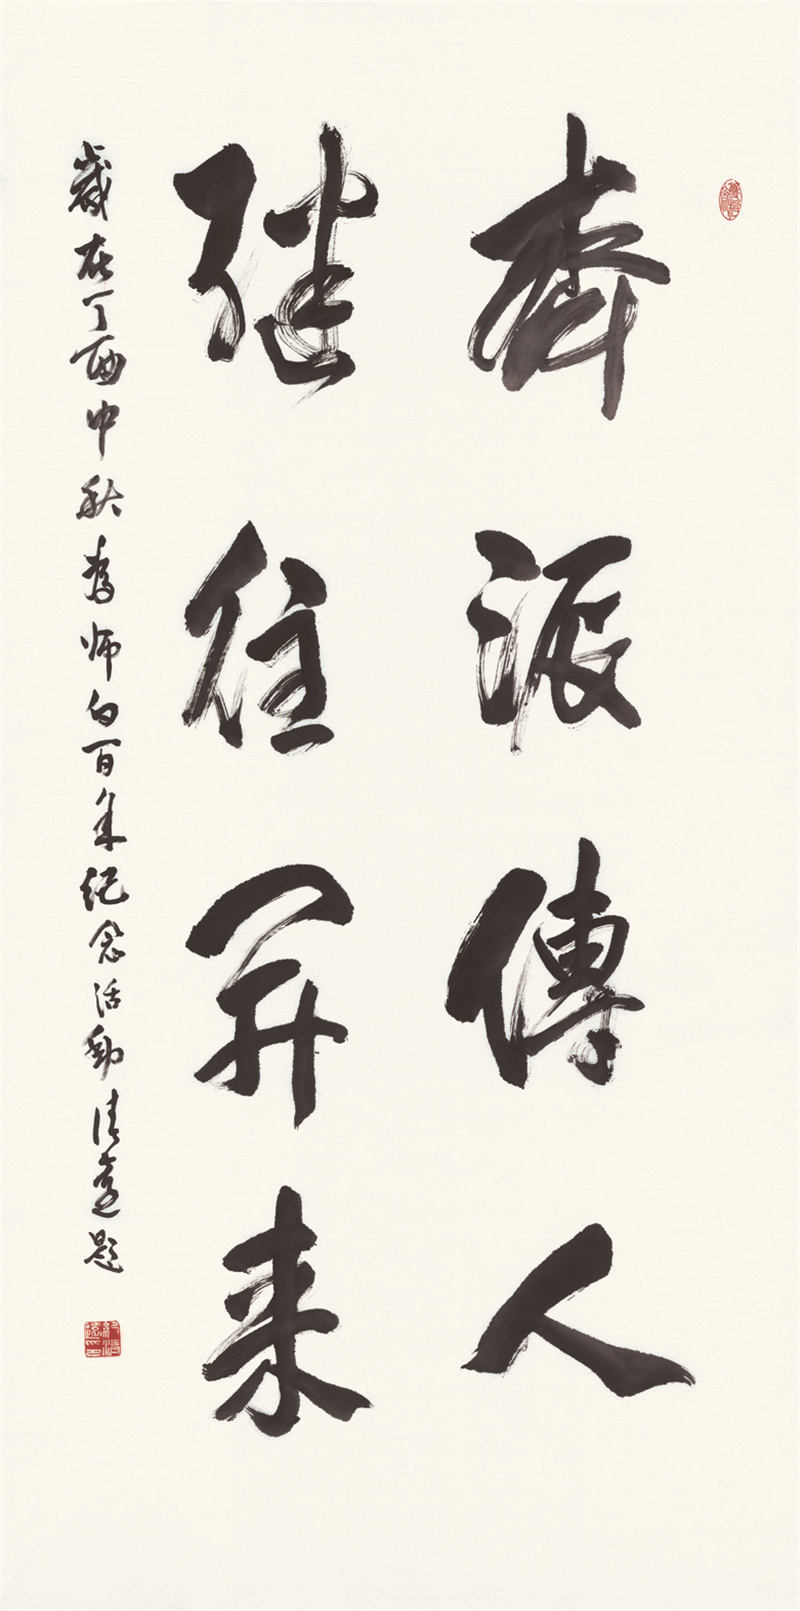 齐派傳人
继往開来
歲在丁酉中秋为师白百年纪念活動清遠題